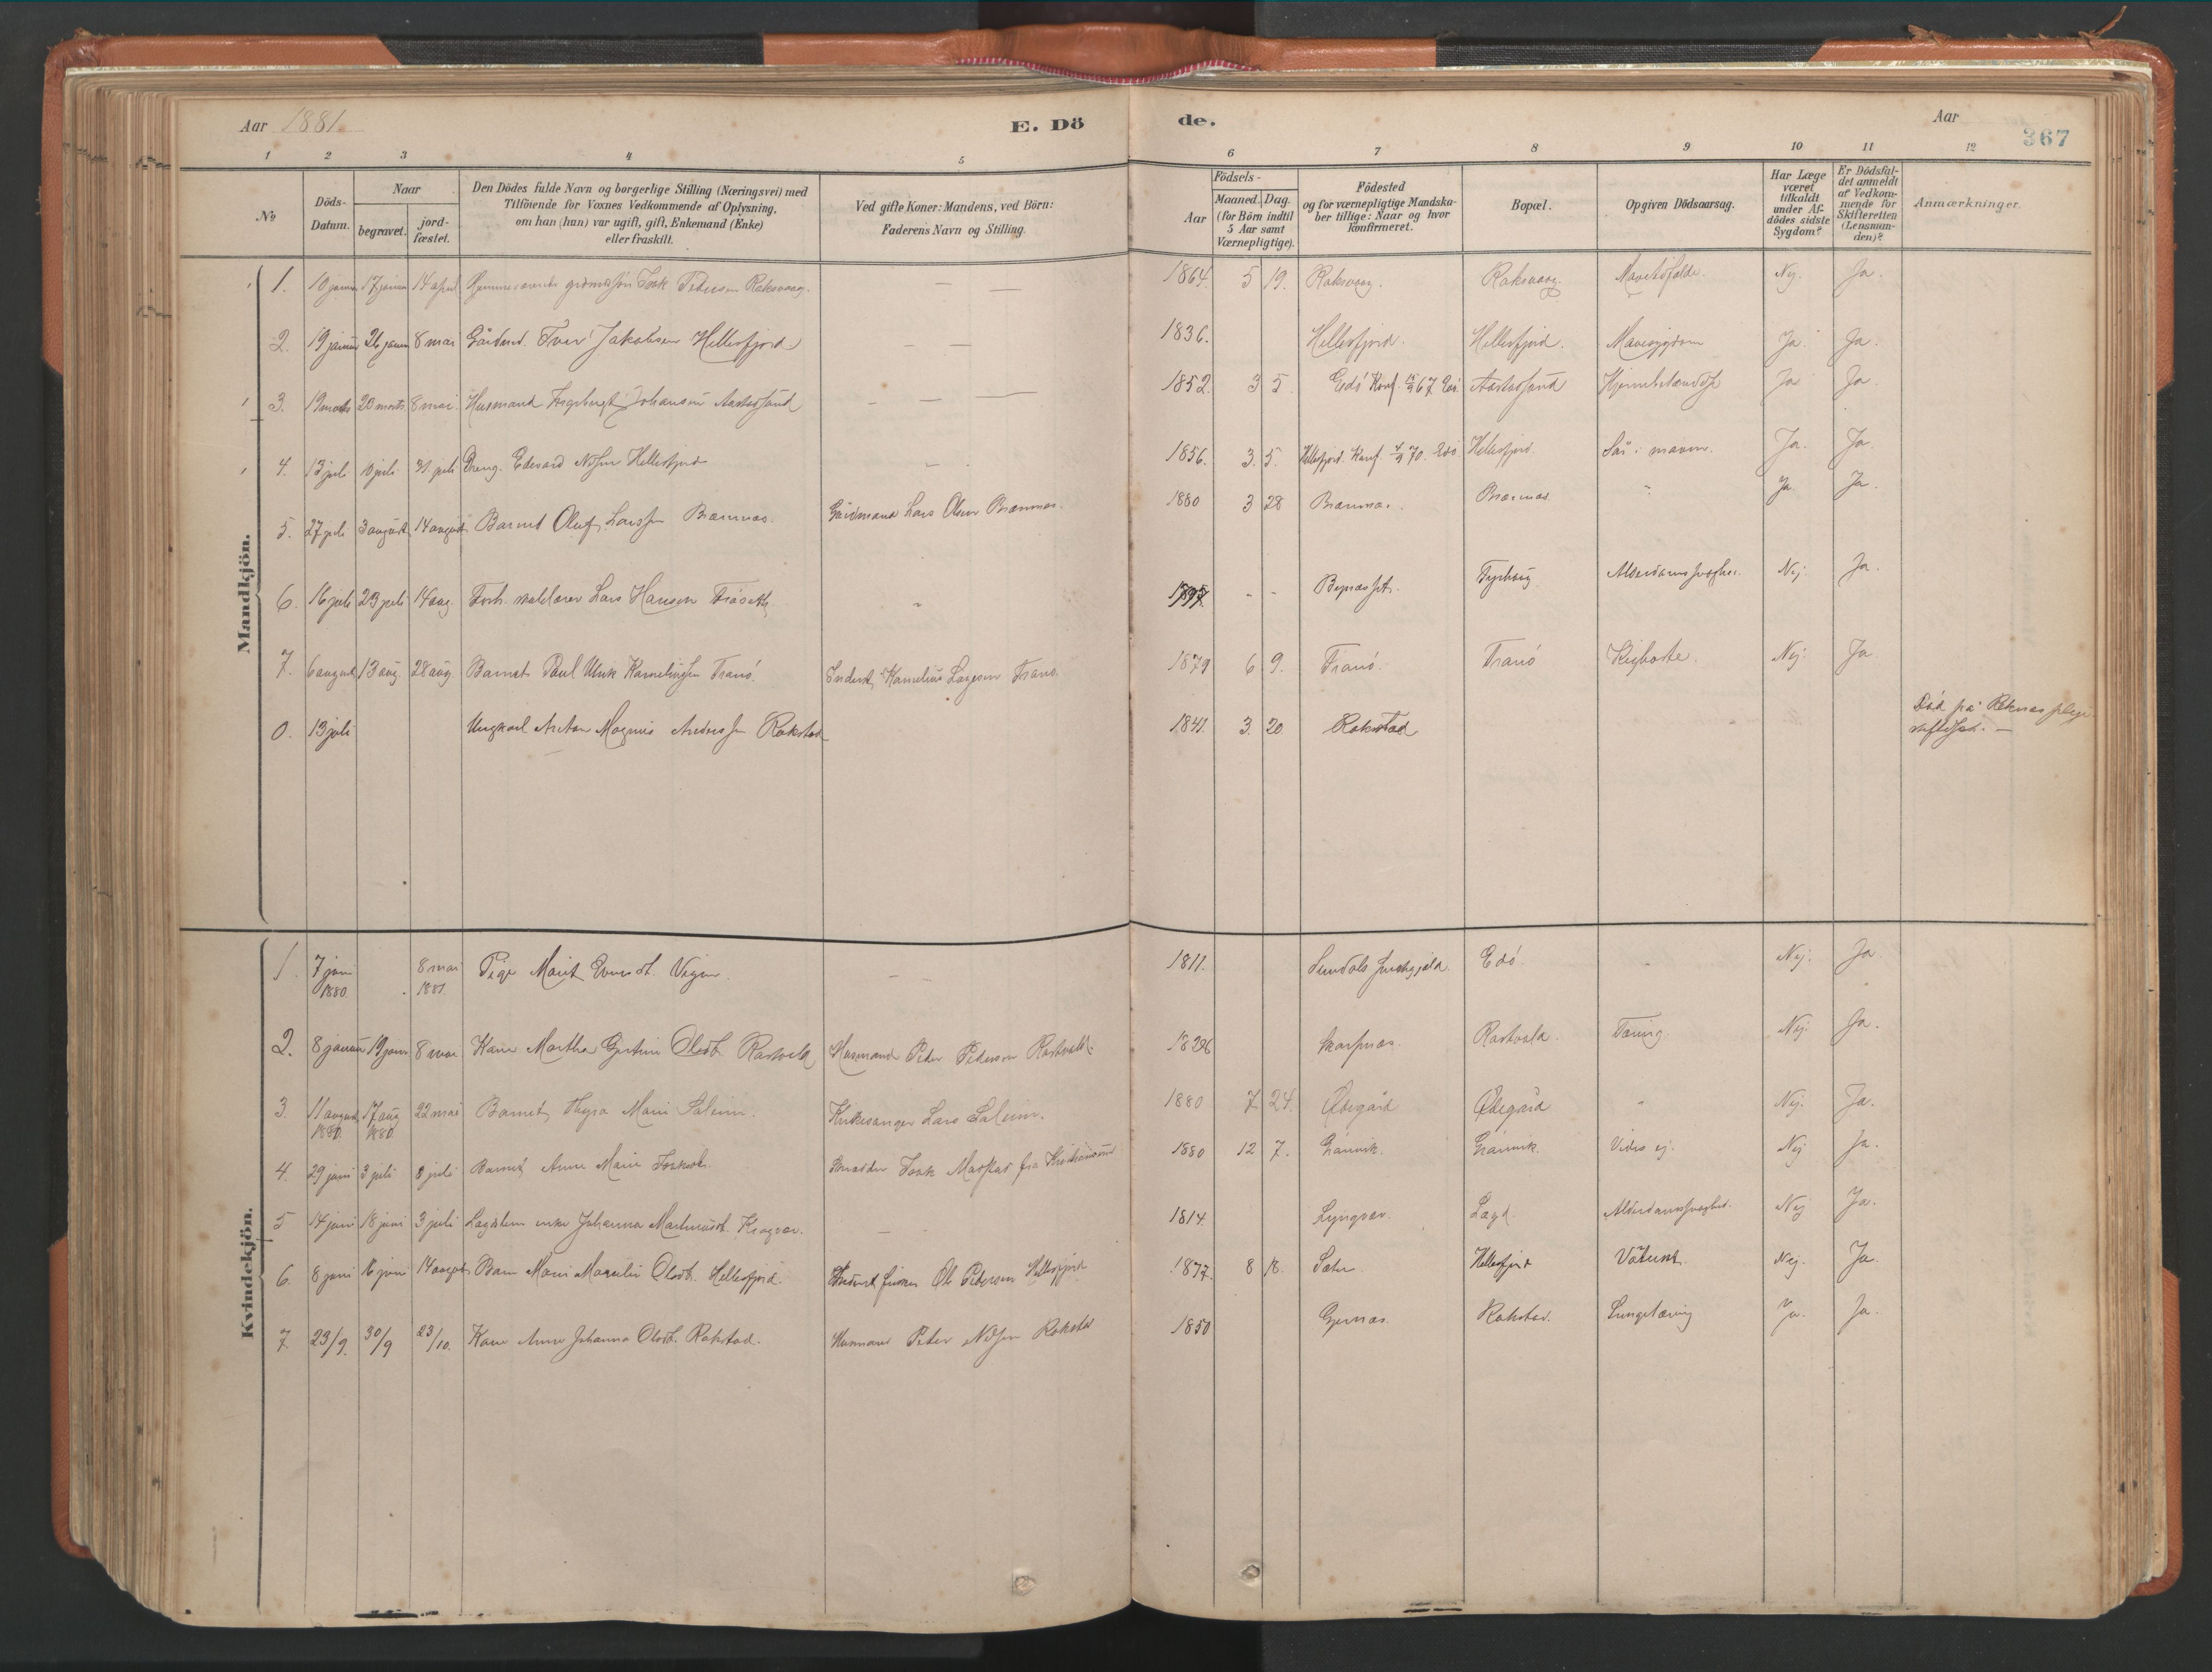 Aar 1881.
E. Dö
de.
Aar
367
1 2 3 4 5 6 7 8 9 10 11 12
No
Döds-Datum.
Naar
begravet.
jord-fæstet.
Den Dödes fulde Navn og borgerlige Stilling (Næringsvei) med
Tilföiende for Voxnes Vedkommende af Oplysning,
om han (hun) var ugift, gift, Enkemand (Enke)
eller fraskilt.
Ved gifte Koner: Mandens, ved Börn:
Faderens Navn og Stilling.
Födsels-
Aar
Maaned. Dag.
(for Börn indtil
5 Aar samt
Værnepligtige).
Födested
og for værnepligtige Mandska-
ber tillige: Naar og hvor
konfirmeret.
Bopæl.
Opgiven Dödsaarsag.
Har Læge
været
tilkaldt
under Af-
dödes sidste
Sygdom?
Er Dödsfal-
det anmeldt
af Vedkom-
mende for
Skifteretten
(Lensman-
den)?
Anmærkninger.
Mandkjön.
1. 10 januar 17 januar 14 april Isak Pedersen Roksvaag. — — 1864. 5 19. Roksvaag. Roksvaag. Nej. Ja.
2. 19 januar 26 januar 8 mai Gårdmd. Iver Jakobsen Hellesfjord — — 1836. Hellesfjord. Hellesfjord. Mavesygdom Ja. Ja.
3. 19 marts 20 marts 8 mai. Husmand Ingebrigt Johansen Aastasund — — — 1852. 3 5. Edö Konf. 67 Edö Aastasund Ja Ja.
4. 13 juli juli 31 juli Dreng. Edvard Nilsen Hellesfjord — 1856. 3. 5. Hellesfjord. Konf. 70. Edö. Hellesfjord Sår i maven. Ja. Ja.
5. 27 juli 3 august 14 august Barnet Oluf Larssen Brænnæs. Gårdmand Lars Olsen Brænnæs. 1880 3 28 Brænnæs. Brænnæs " Ja Ja.
6. 16 juli 23 juli 14 aug. Forh. Lars Hansen " - - Nej. Ja.
7. 6 august 13 aug. 28 aug Barnet Paul Kornelius Tranö. Inderst Kornelius Tranö. 1879 6 9. Tranö. Tranö Kighoste. Nej. Ja
0. 13 juli Ungkarl Anton Magnus Anderssen Rokstad 1841. 3. 20. Rokstad Död på Reknæs pleje-
stiftelse. —
Kvindekjön.
1. 7 juni 1880. 8 mai 1881. Pige Marit Evensdt. Vigen — — 1811. Sundals præstegjæld. Edö. - Nej. Ja
2. 8 januar 19 janu 8 mai Kone Martha Gjertine Olsdt. Rastvold Husmand Peter Pedersen Rastvold. 1826 Skarpnæs. Rastvold Tæring. Nej. Ja.
3. 11 august 1880. 17 aug 1880 22 mai Barnet Thyra Marie Salem. Kirkesanger Lars Salem. 1880 7 24. Ødegård Ødegård " Nej. Ja.
4. 29 juni 3 juli 8 juli Barnet Anne Marie Isaksdt. Isak fra Kristiansund 1880 12 7. Grånvik. Grånvik. Vides ej. Nej Ja.
5 14 juni 18 juni 3 juli Lægdslem enke Johanna Martinusdt. Kragvær. — 1814. Lyngvær. Lægd. Alderdomssvaghed. Nej Ja.
6. 8 juni 16 juni 14 august Barn Marie Olsdt. Hellesfjord. Inderst fisker Ole Pedersen Hellesfjord 1877. 8 18. Sæter Hellesfjord Vatersot Nej. Ja.
7 23/9. 30/9 23/10. Kone Anne Johanna Olsdt. Rokstad. Husmand Peter Nilsen Rokstad 1850 Gjernæs. Rokstad. Lungetæring Ja. Ja.